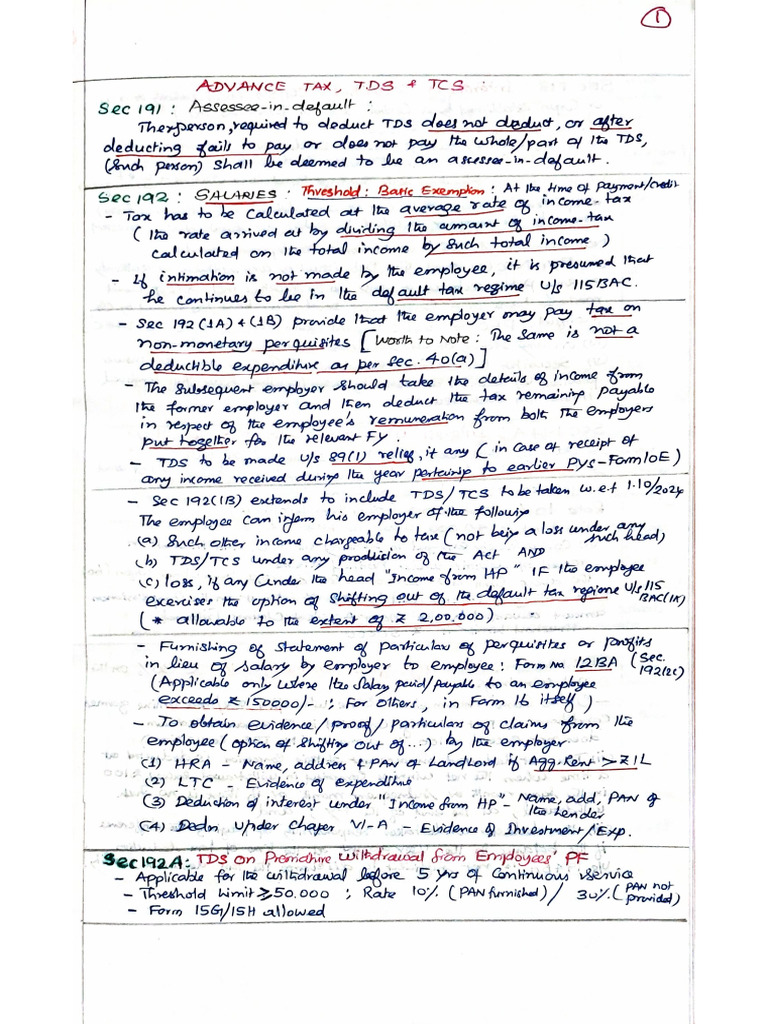 1
ADVANCE TAX, TDS & TCS :
Sec 191 : Assessee-in-default :
The person, required to deduct TDS does not deduct, or after
deducting fails to pay or does not pay the whole/part of the TDS,
(such person) shall be deemed to be an assessee-in-default.
Sec 192 : SALARIES : Threshold : Basic Exemption : At the time of payment/credit
- Tax has to be calculated at the average rate of income-tax
( the rate arrived at by dividing the amount of income-tax
calculated on the total income by such total income )
- If intimation is not made by the employee, it is presumed that
he continues to be in the default tax regime u/s 115BAC.
- Sec 192 (1A) & (1B) provide that the employer may pay tax on
non-monetary perquisites [ Worth to Note : The same is not a
deductible expenditure as per sec. 40(a) ]
- The subsequent employer should take the details of income from
the former employer and then deduct the tax remaining payable
in respect of the employee's remuneration from both the employers
put together for the relevant FY.
- TDS to be made u/s 89(1) relief, if any ( in case of receipt of
any income received during the year pertaining to earlier PYs - Form 10E )
- Sec 192(1B) extends to include TDS/TCS to be taken w.e.f 1.10/2024
The employee can inform his employer of the following
(a) Such other income chargeable to tax ( not being a loss under any such head )
(b) TDS/TCS under any provision of the Act AND
(c) loss, if any (under the head "Income from HP" IF the employee
exercises the option of shifting out of the default tax regime u/s 115 BAC(1A)
( * allowable to the extent of ₹ 2,00,000 )
- Furnishing of Statement of Particulars of perquisites or profits
in lieu of salary by employer to employee : Form No 12BA ( Sec. 192(2C)
(Applicable only where the salary paid/payable to an employee
exceeds ₹ 150000/- ; For others, in Form 16 itself )
- To obtain evidence / proof / particulars of claims from the
employee ( option of shifting out of ... ) by the employer
(1) HRA - Name, address & PAN of Landlord if Agg. Rent > ₹ 1L
(2) LTC - Evidence of expenditure
(3) Deduction of interest under "Income from HP" - Name, add, PAN of the Lender
(4) Dedn under Chaper VI-A - Evidence of Investment / Exp.
Sec 192A : TDS on Premature Withdrawal from Employees' PF
- Applicable for the withdrawal before 5 yrs of continuous service
- Threshold Limit ≥ 50,000 ; Rate 10% (PAN furnished) / 30% ( PAN not provided)
- Form 15G/15H allowed